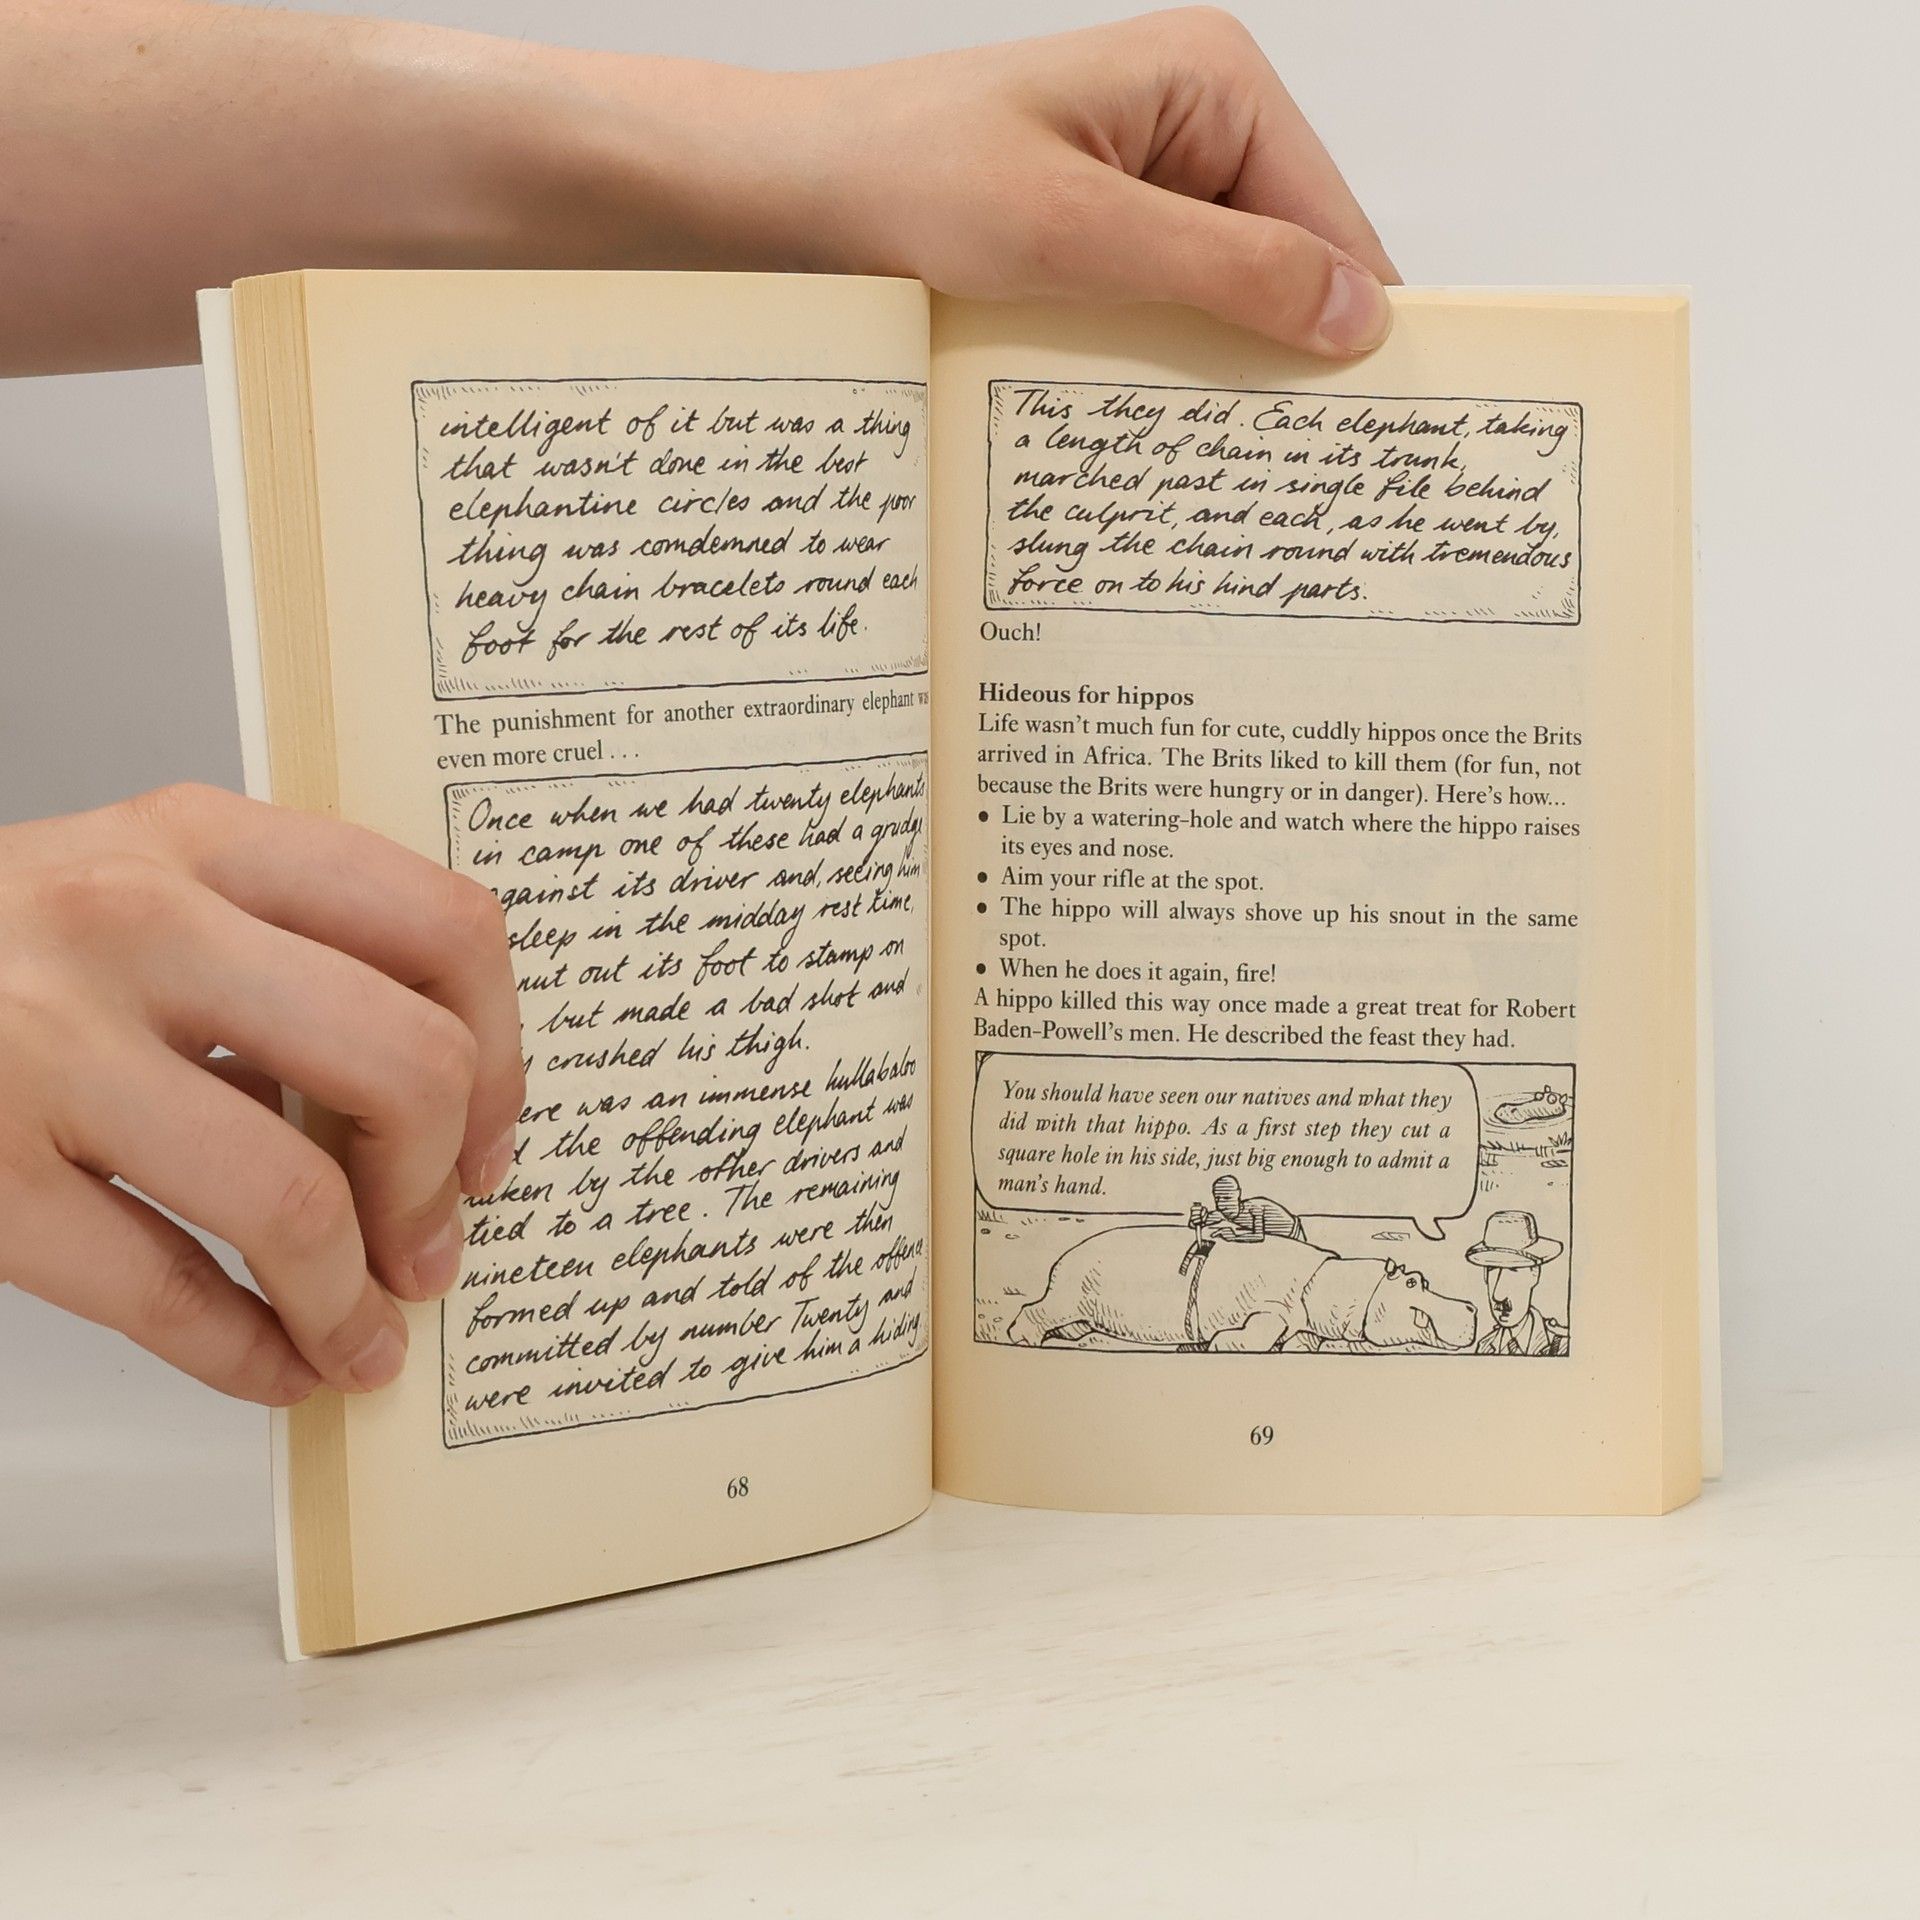 intelligent of it but was a thing
that wasn't done in the best
elephantine circles and the poor
thing was comdemned to wear
heavy chain bracelets round each
foot for the rest of its life.
The punishment for another extraordinary elephant
even more cruel . . .
Once when we had twenty elephants
in camp one of these had a grudge
against its driver and, seeing him
sleep in the midday rest time,
out its foot to stamp on
but made a bad shot and
crushed his thigh.
was an immense hullabaloo
the offending elephant was
taken by the other drivers and
tied to a tree. The remaining
nineteen elephants were then
formed up and told of the offence
committed by number Twenty and
were invited to give him a hiding.
68
This they did. Each elephant, taking
a length of chain in its trunk,
marched past in single file behind
the culprit, and each, as he went by,
slung the chain round with tremendous
force on to his hind parts.
Ouch!
Hideous for hippos
Life wasn't much fun for cute, cuddly hippos once the Brits
arrived in Africa. The Brits liked to kill them (for fun, not
because the Brits were hungry or in danger). Here's how...
• Lie by a watering-hole and watch where the hippo raises
its eyes and nose.
• Aim your rifle at the spot.
• The hippo will always shove up his snout in the same
spot.
• When he does it again, fire!
A hippo killed this way once made a great treat for Robert
Baden-Powell's men. He described the feast they had.
You should have seen our natives and what they
did with that hippo. As a first step they cut a
square hole in his side, just big enough to admit a
man's hand.
69